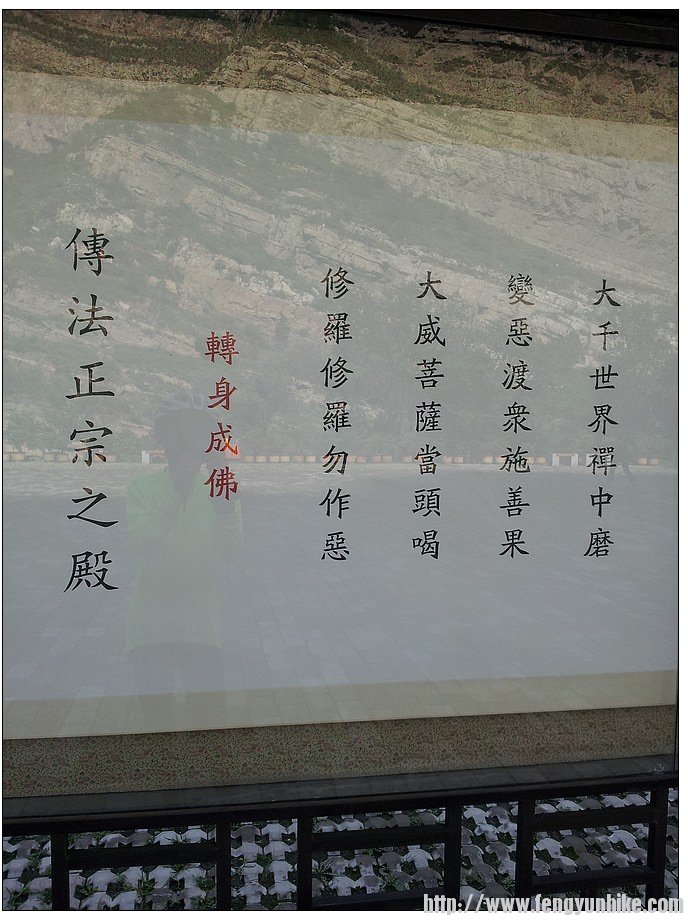 大千世界禪中磨
變惡渡衆施善果
大威菩薩當頭喝
修羅修羅勿作惡
轉身成佛
傳法正宗之殿
http://www.fengyunbike.com